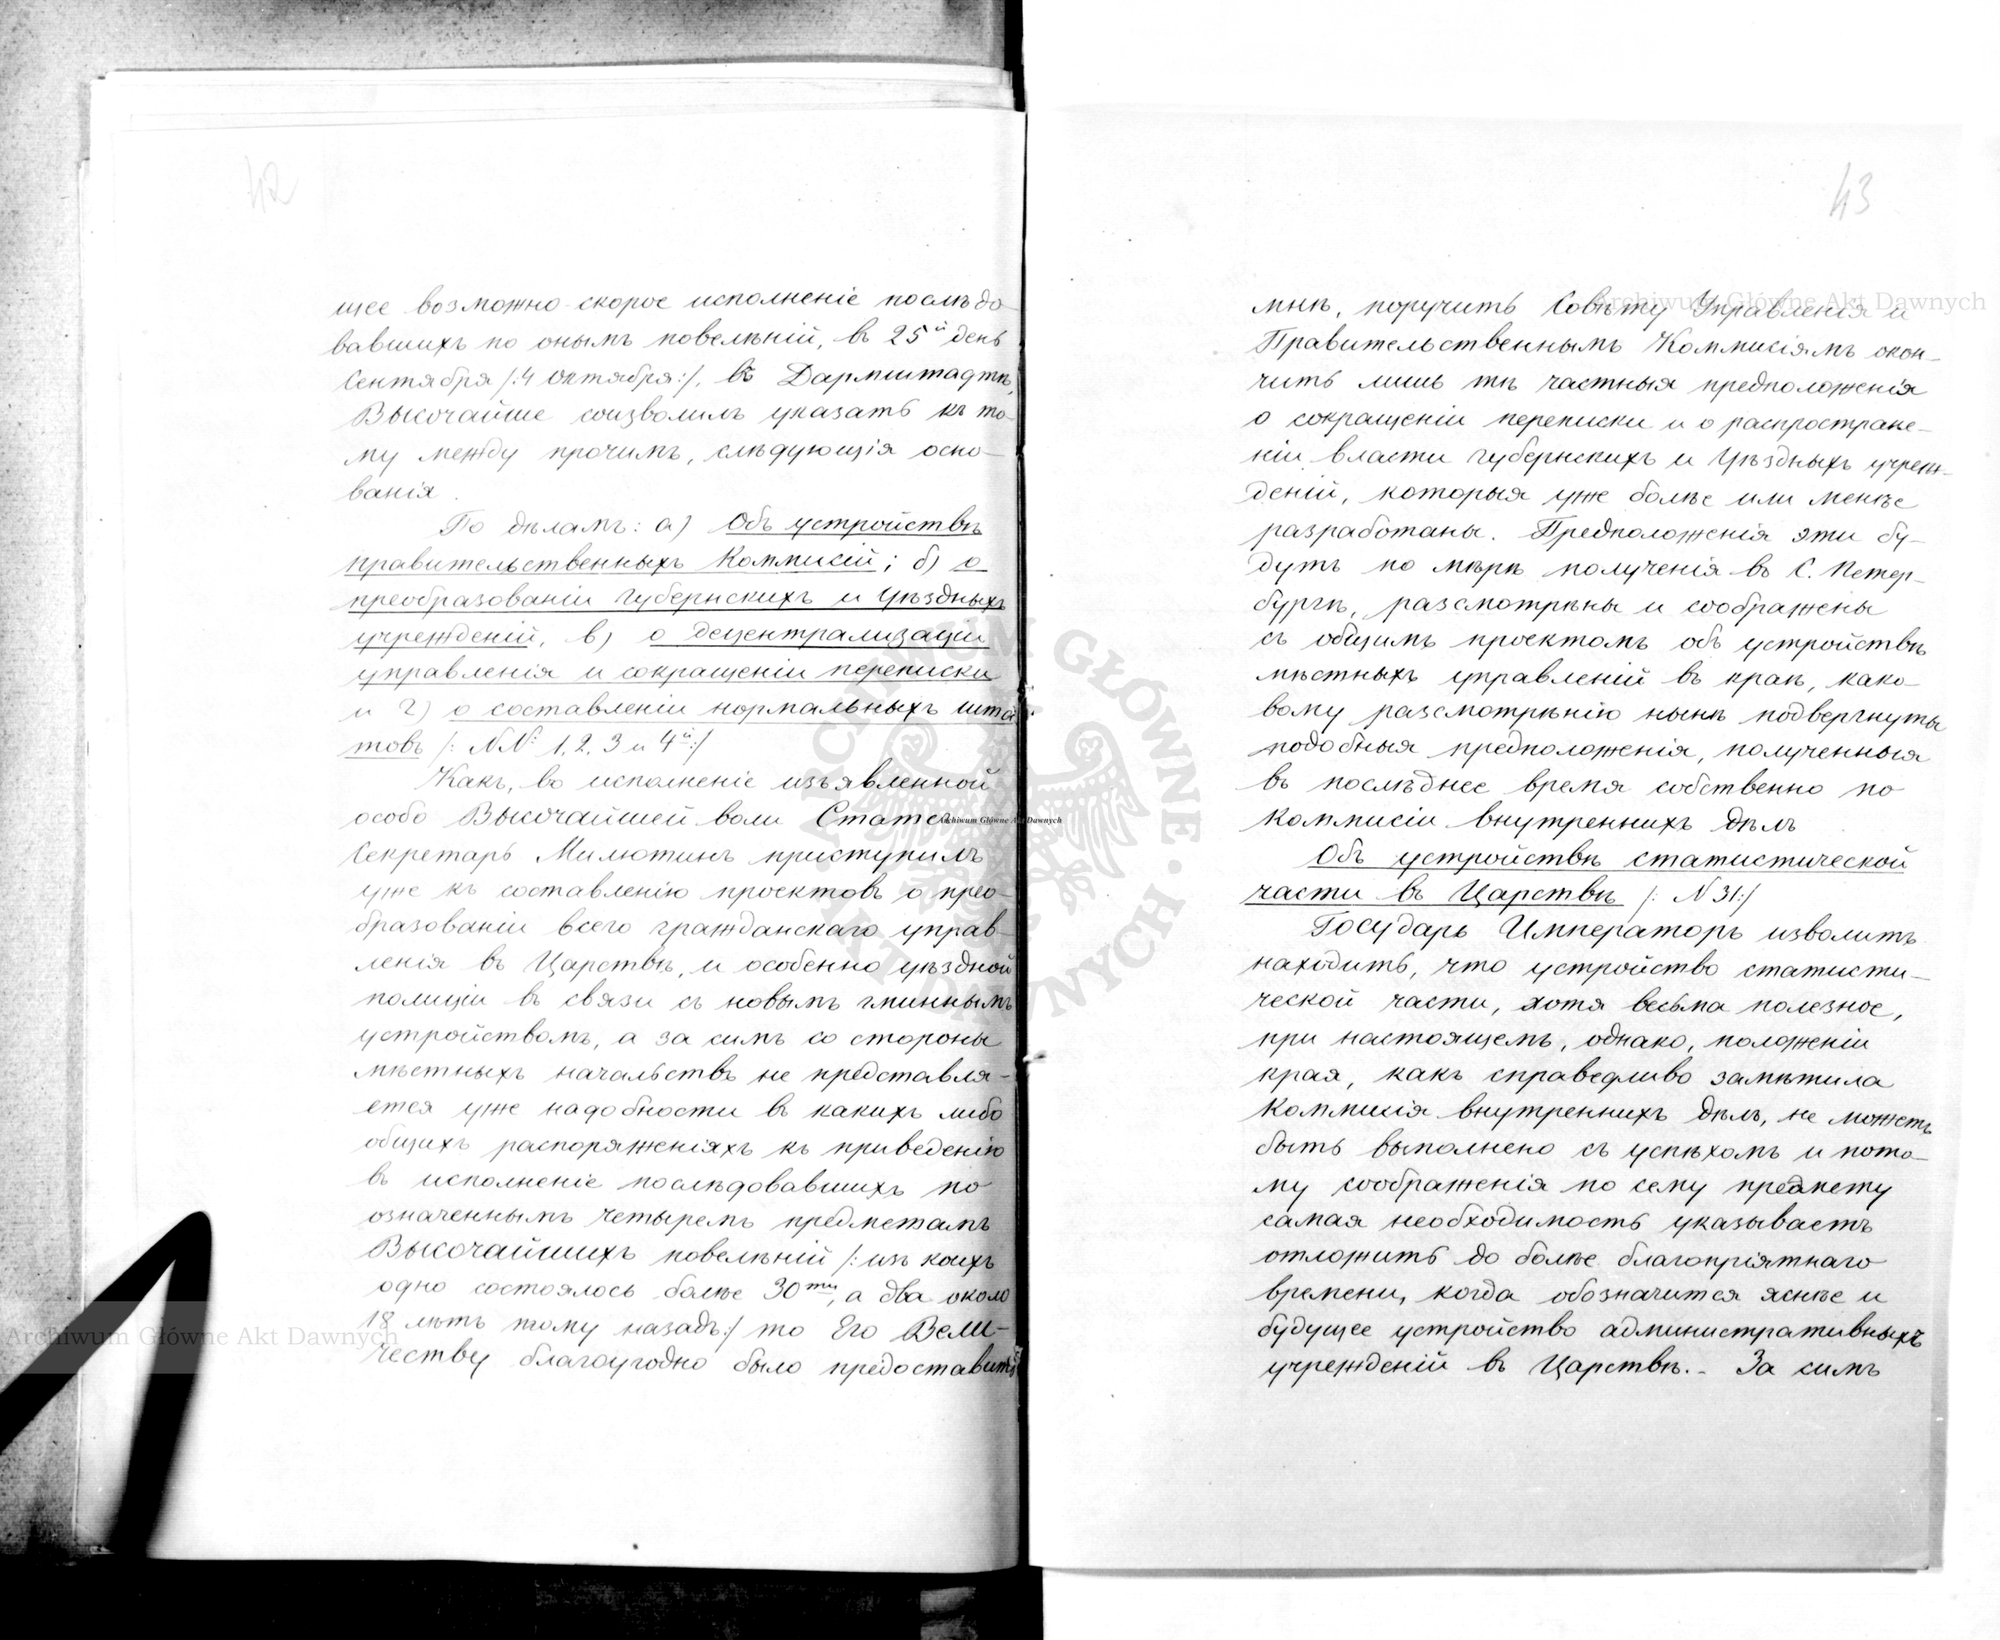 42
щее возможно-скорое исполненіе послѣдо-
вавшихъ по онымъ повелѣній, въ 25й день
Сентября /:4 Октября:/, въ Дармштадтѣ,
Высочайше соизволилъ указать къ то-
му между прочимъ, слѣдующія осно-
ванія.
По дѣламъ: а) Объ устройствѣ
правительственныхъ Коммисій; б) о
преобразованіи Губернскихъ и Уѣздныхъ
учрежденій, в) о децентрализаціи
управленія и сокращеніи переписки
и г) о составленіи нормальныхъ шта-
товъ /: NN: 1, 2, 3 и 4й:/
Какъ, во исполненіе изъявленной
особо Высочайшей воли Статсъ
Секретарь Милютинъ приступилъ
уже къ составленію проектовъ о прео-
бразованіи всего гражданскаго управ-
ленія въ Царствѣ, и особенно уѣздной
полиціи въ связи съ новымъ гминнымъ
устройствомъ, а за симъ со стороны
мѣстныхъ начальствъ не представля-
ется уже надобности въ какихъ либо
общихъ распоряженіяхъ къ приведенію
въ исполненіе послѣдовавшихъ по
означеннымъ четыремъ предметамъ
Высочайшихъ повелѣній /: изъ коихъ
одно состоялось болѣе 30ти, а два около
18 лѣтъ тому назадъ:/ то Его Вели-
честву благоугодно было предоставить
43
мнѣ, поручить Совѣту Управленія и
Правительственнымъ Коммисіямъ окон-
чить лишь тѣ частныя предположенія
о сокращеніи переписки и о распростране-
ніи власти губернскихъ и Уѣздныхъ учреж-
деній, которыя уже болѣе или менѣе
разработаны. Предположенія эти бу-
дутъ по мѣрѣ полученія въ С. Петер-
бургѣ, разсмотрѣны и соображены
съ общимъ проектомъ объ устройствѣ
мѣстныхъ управленій въ краѣ, како-
вому разсмотрѣнію нынѣ подвергнуты
подобныя предположенія, полученныя
въ послѣднее время собственно по
Коммисіи внутреннихъ дѣлъ
Объ устройствѣ статистической
части въ Царствѣ /: N 31:/
Государь Императоръ изволитъ
находить, что устройство статисти-
ческой части, хотя весьма полезное,
при настоящемъ, однако, положеніи
края, какъ справедливо замѣтила
Коммисія внутреннихъ дѣлъ, не можетъ
быть выполнено съ успѣхомъ и пото-
му соображенія по сему предмету
самая необходимость указываетъ
отложить до болѣе благопріятнаго
времени, когда обозначится яснѣе и
будущее устройство административныхъ
учрежденій въ Царствѣ.- За симъ
Archiwum Główne Akt Dawnych
Archiwum Główne Akt Dawnych
Archiwum Główne Akt Dawnych
ARCHIWUM GŁÓWNE · AKT DAWNYCH ·